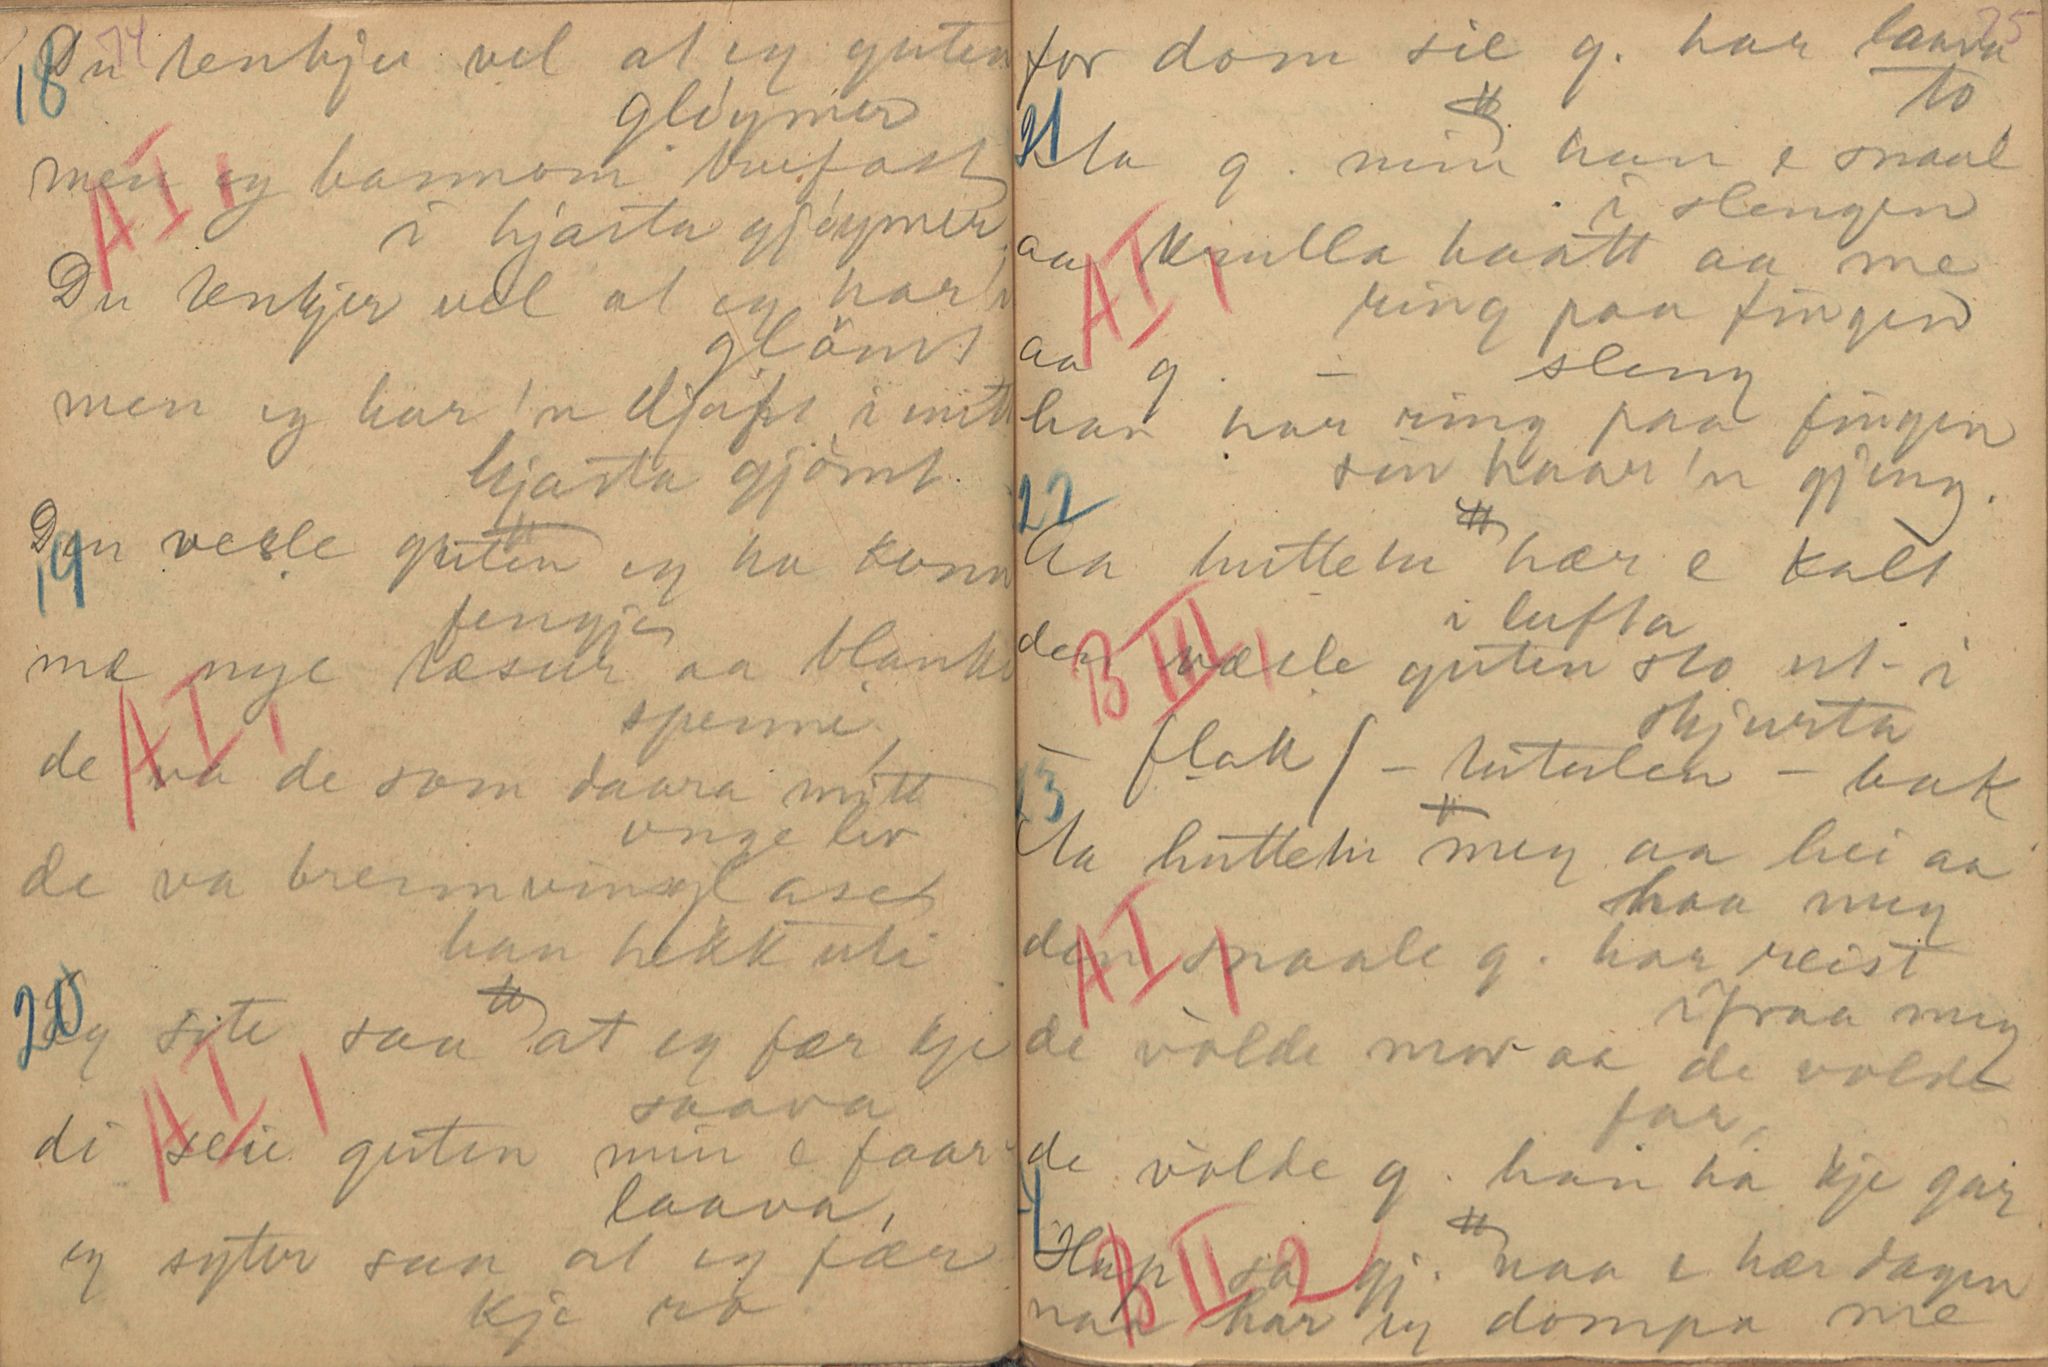 74
18
Du tenkjer vel at eg guten
gløymer
men eg barmom trufast
i hjarta gjøymer,
AI,1
Du tenkjer vel at eg har'n
glömt
men eg har'n djupt i mitt
hjarta gjömt.
19
Den vesle guten eg ha kunn
fengje
mæ nye tæsur aa blanke
spenni,
AI,1
de va de som daara mitt
unge liv
de va brennvinsglaset
han hekk uti
20
Eg site saa at eg fær kje
saava
di seie guten min e faar
laava,
AI,1
eg syter saa at eg fær
kje ro
75
for dom sie g. har laava
to
21
Aa g. min han e snaal
i slengen
aa krulla haatt aa me
ring paa fingen
AI,1
aa g. — sleng
han har ring paa fingen
sin haar'n gjeng.
22
Aa huttetu hær e kalt
i lufta
den væsle guten sto ut i
skjurta
BIII,1
— flak / — tutulen — bak
23
Aa huttetu meg aa hei aa
haa meg
den snaale g. har reist
ifraa meg
AI,1
de volde mor aa de volde
far,
de volde g. han ha kje gar
4
Hup sa gj. naa e hær dagen
BII 2
naa har eg dompa me